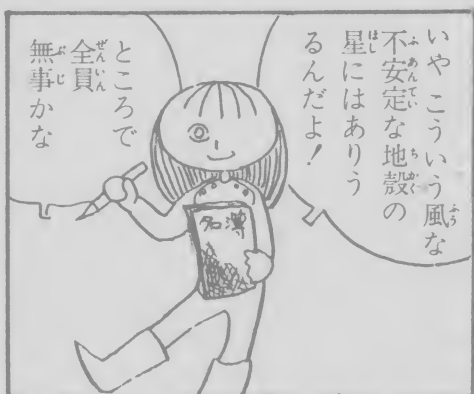 いや こういう風な
不安定な地殻の
星にはありう
るんだよ！
ところで
全員
無事かな
名簿